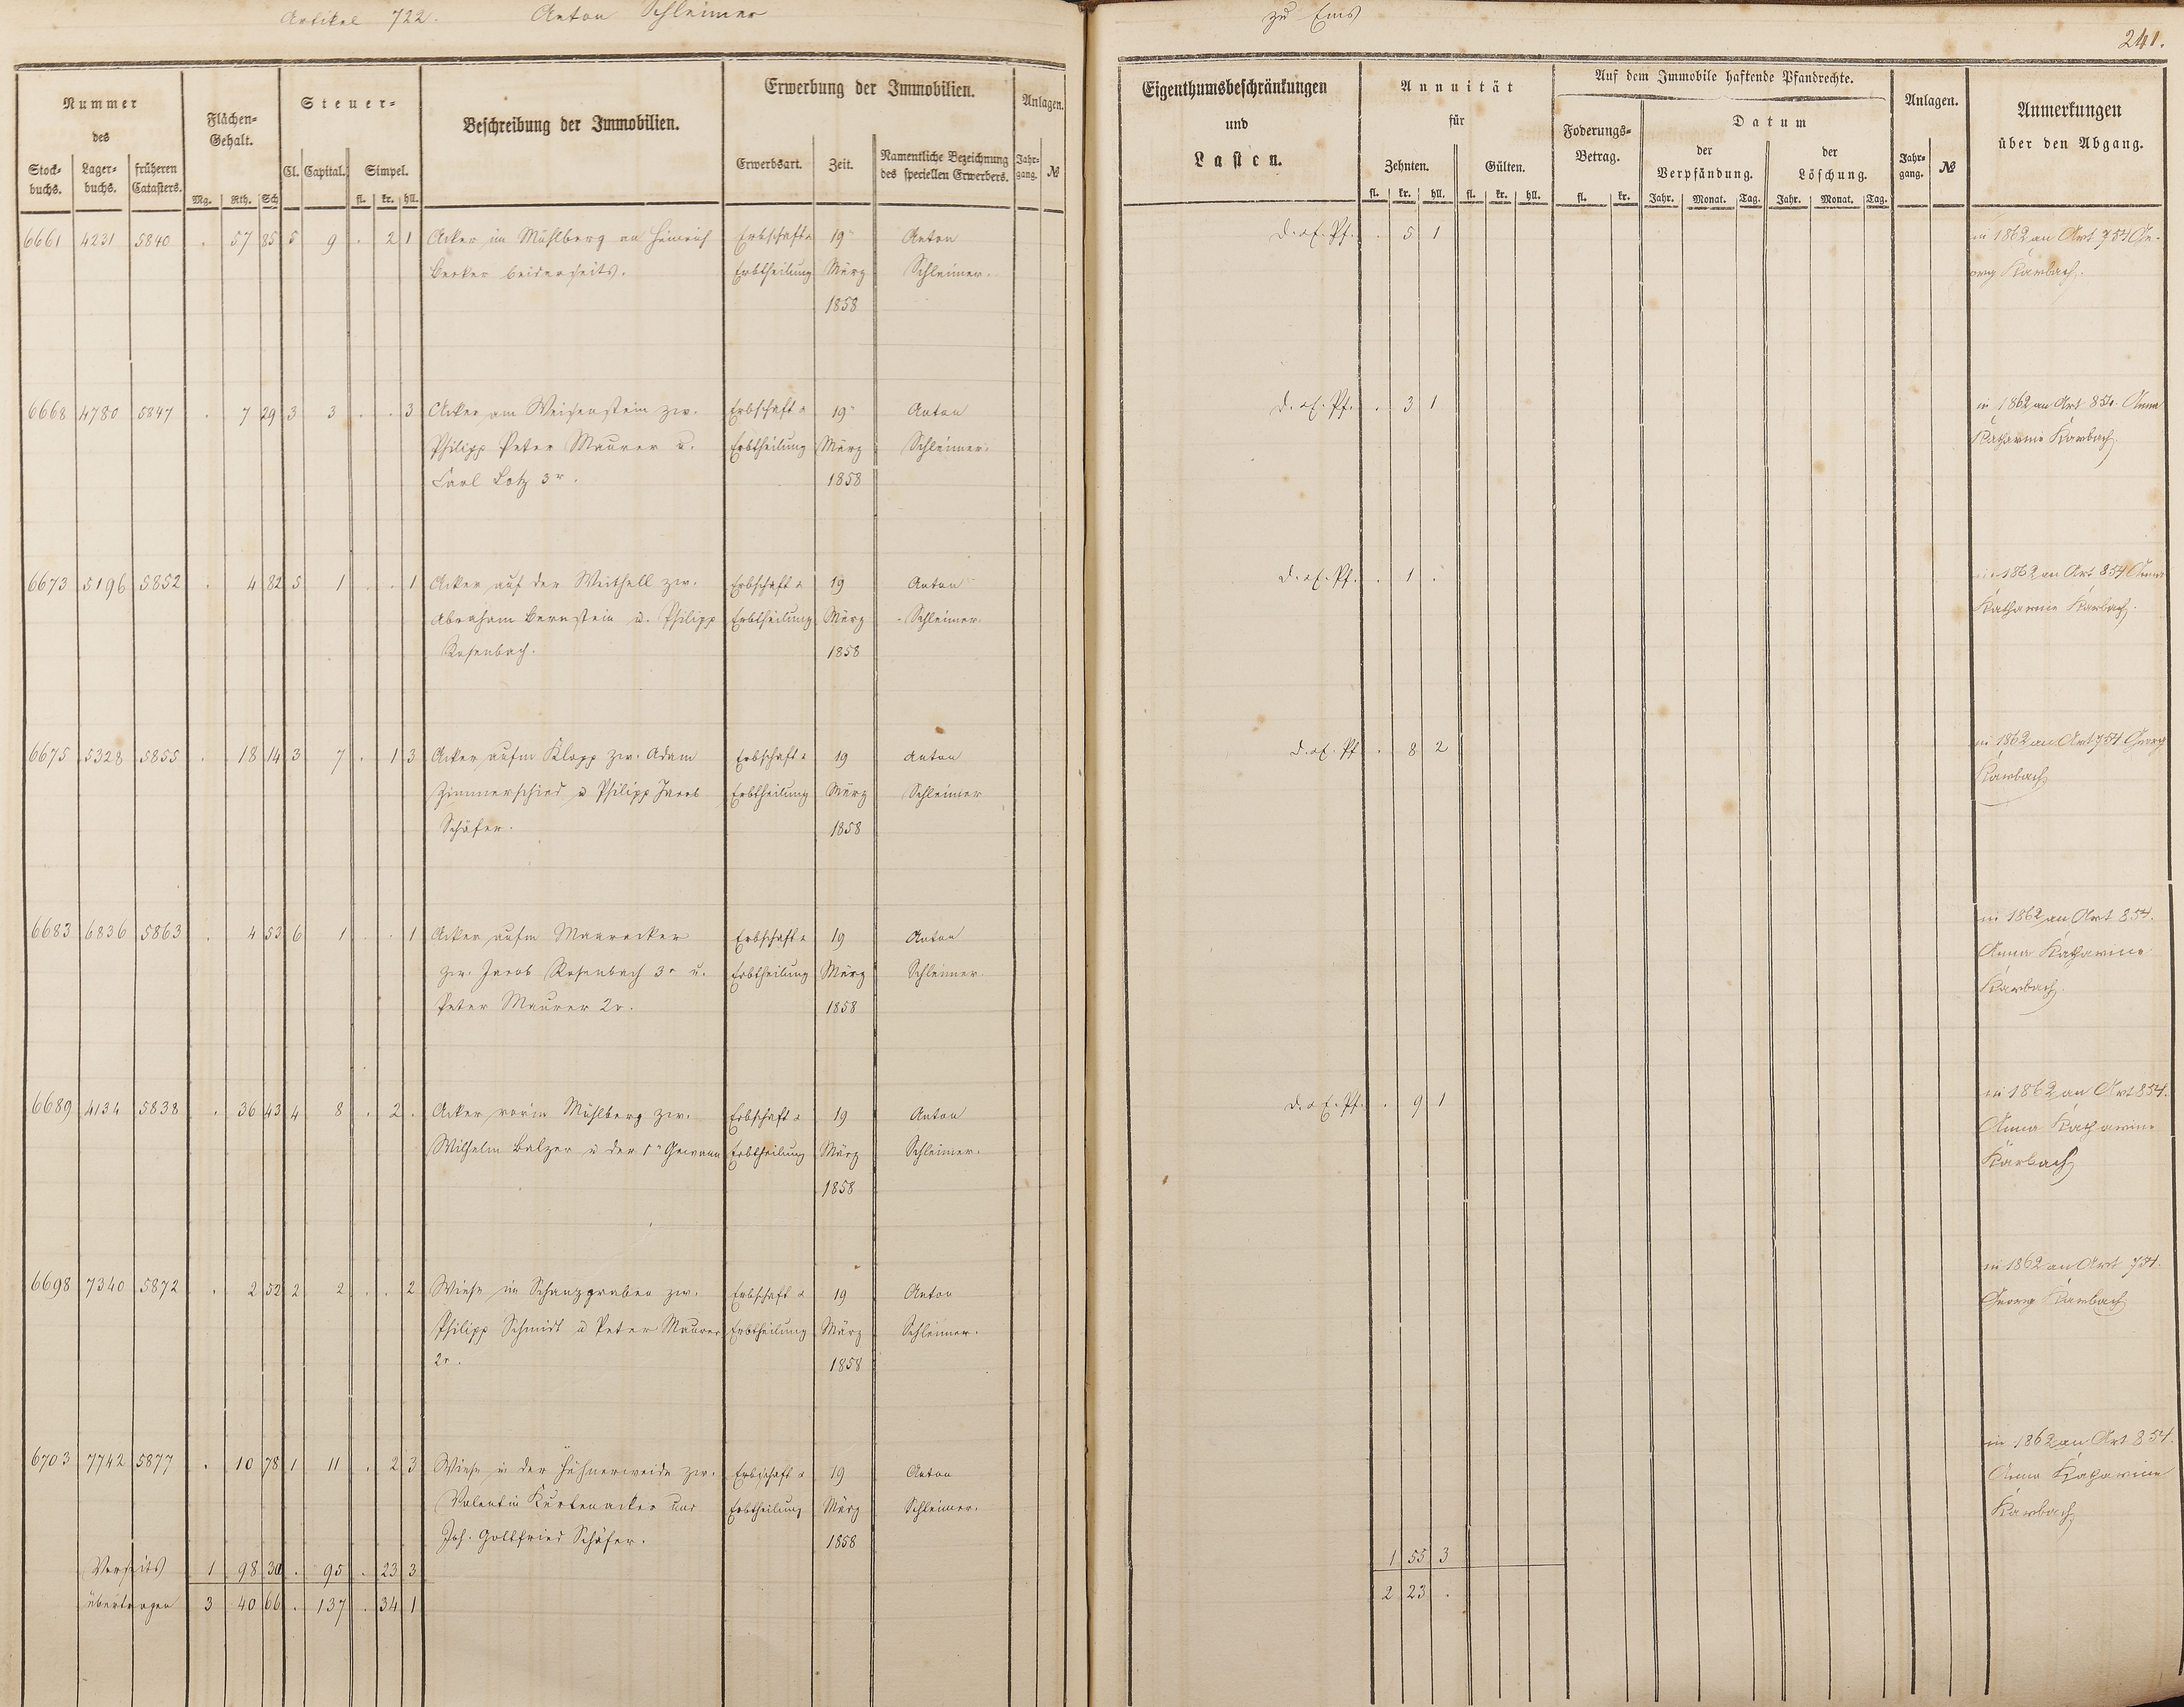 Artikel 722. Anton Schleimer
zu Ems
241.
Nummer des
Stockbuchs. Lagerbuchs. früheren Catasters.
Flächen-Gehalt.
Mg. Rth. Sch
Steuer-
Cl. Capital. Simpel.
fl. kr. hll.
Beschreibung der Immobilien.
Erwerbung der Immobilien.
Erwerbsart. Zeit. Namentliche Bezeichnung des speciellen Erwerbers.
Anlagen.
Jahrgang. №
Eigenthumsbeschränkungen
und
Lasten.
Annuität
für
Zehnten. Gülten.
fl. kr. hll. fl. kr. hll.
Auf dem Immobile haftende Pfandrechte.
Foderungs-Betrag.
fl. kr.
Datum
der Verpfändung. der Löschung.
Jahr. Monat. Tag. Jahr. Monat. Tag.
Anlagen.
Jahrgang. №
Anmerkungen
über den Abgang.
6661 4231 5840 . 57 85 5 9 . 2 1 Acker im Mühlberg an Heinrich Erbschaft u 19 Anton D. & E. Pf. . 5 1 in 1862 an Art 754 Ge-
Becker beiderseits. Erbtheilung März Schleimer. org Karbach.
1858
6668 4780 5847 . 7 29 3 3 . . 3 Acker am Weisenstein zw. Erbschaft u 19 Anton D. & E. Pf. . 3 1 in 1862 an Art 854. Anna
Philipp Peter Maurer u. Erbtheilung März Schleimer. Katharine Karbach.
Carl Lotz 3r. 1858
6673 5196 5852 . 4 82 5 1 . . 1 Acker auf der Weithell zw. Erbschaft u 19 Anton D. & E. Pf. . 1 . in 1862 an Art 854 Anna
Abraham Bernstein u. Philipp Erbtheilung März Schleimer. Katharine Karbach.
Rosenbach. 1858
6675 5328 5855 . 18 14 3 7 . 1 3 Acker aufm Klopp zw. Adam Erbschaft u 19 Anton D. & E. Pf . 8 2 in 1862 an Art 754 Georg
Zimmerschied u Philipp Jacob Erbtheilung März Schleimer Karbach
Schäfer. 1858
6683 6836 5863 . 4 53 6 1 . . 1 Acker aufm Maaracker Erbschaft u 19 Anton in 1862 an Art 854.
zw. Jacob Rosenbach 3r u. Erbtheilung März Schleimer. Anna Katharine
Peter Maurer 2r. 1858 Karbach.
6689 4134 5838 . 36 43 4 8 . 2 . Acker vorm Mühlberg zw. Erbschaft u 19 Anton D. & E. Pf. . 9 1 in 1862 an Art 854.
Wilhelm Balzer u der 1n Gewann Erbtheilung März Schleimer. Anna Katharine
1858 Karbach
6698 7340 5872 . 2 52 2 2 . . 2 Wiese im Schanzgraben zw. Erbschaft u 19 Anton in 1862 an Art 754.
Philipp Schmidt u Peter Maurer Erbtheilung März Schleimer. Georg Karbach
2r. 1858
6703 7742 5877 . 10 78 1 11 . 2 3 Wiese in der Hühnerweide zw. Erbschaft u 19 Anton in 1862 an Art 854.
Valentin Kurtenacker und Erbtheilung März Schleimer. Anna Katharine
Joh. Gottfried Schäfer. 1858 Karbach
Verseits 1 98 30 . 95 . 23 3 1 55 3
übertragen 3 40 66 . 137 . 34 1 2 23 .